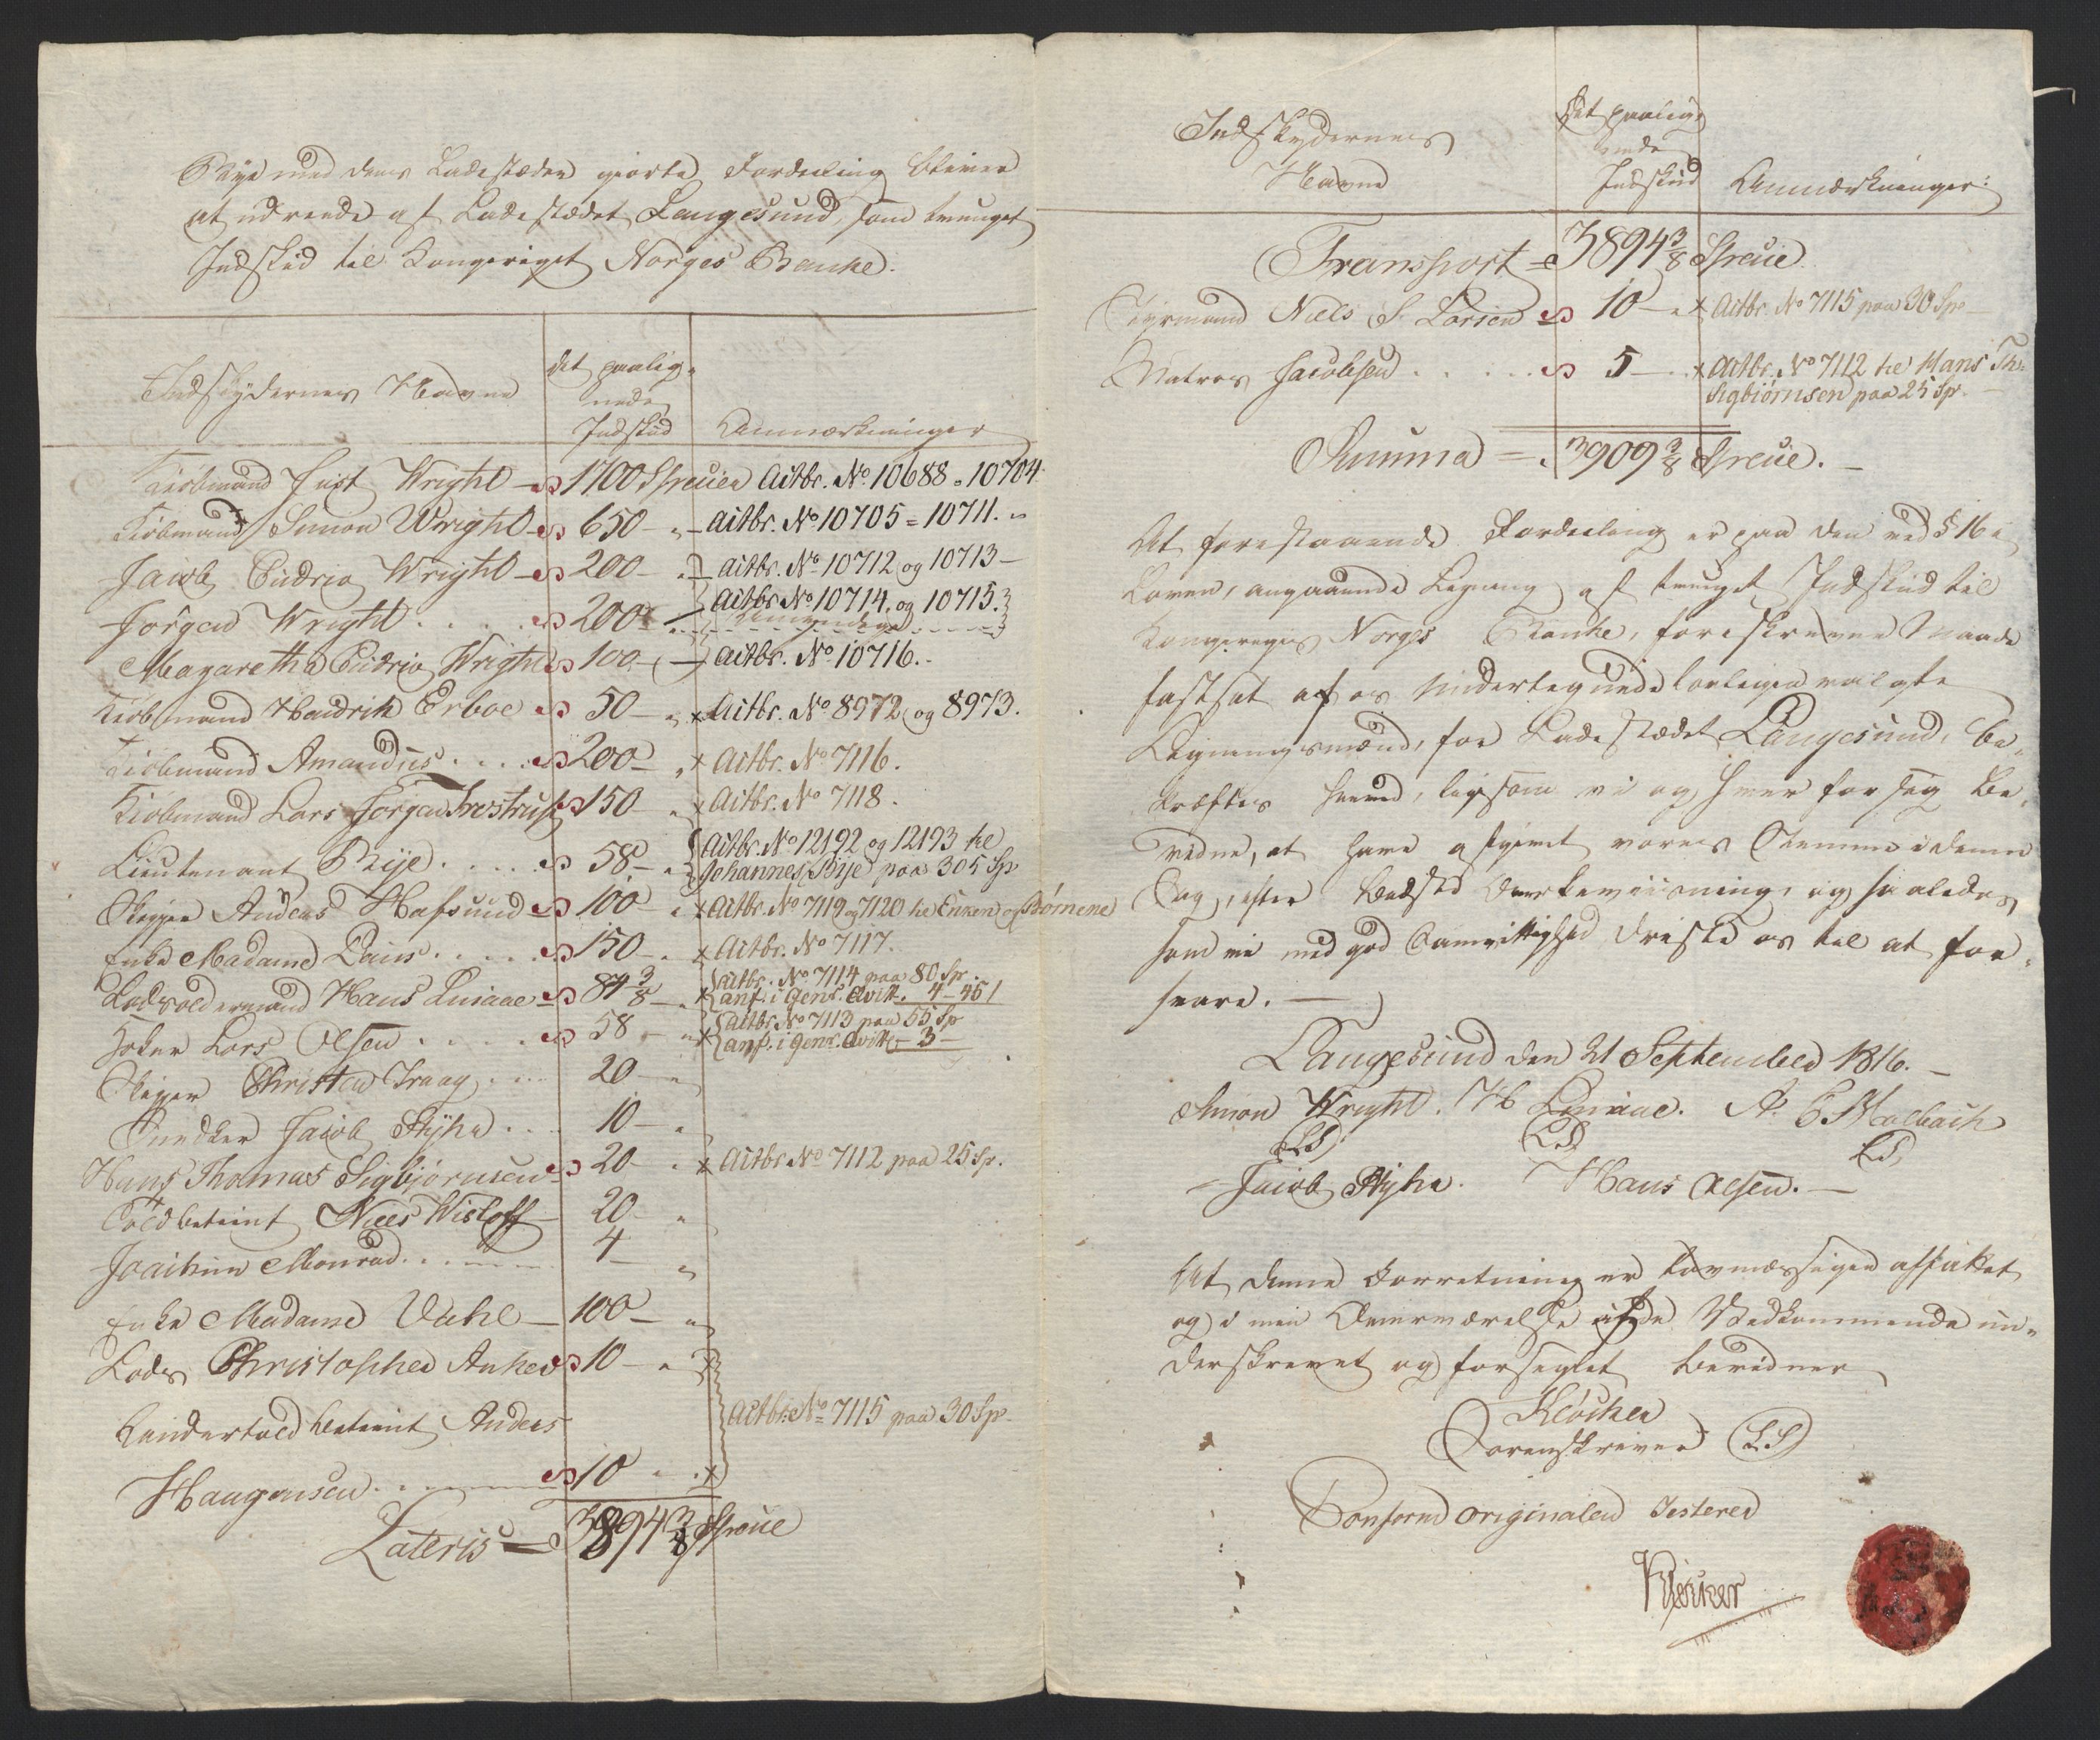 Byе med dens Ladestæder giorte Fordeeling bliver
at udreede af Ladestædet Langesund, som tvunget
Indskud til Kongeriget Norges Banke.
Indskydernes Navne
det paalig-
nede
Indskud
Anmærkninger
Kiøbmand Just Wright 1700 Spesier Actbr. No. 10688 = 10704.
Kiøbmand Simon Wright 650 - " - Actbr. No 10705 = 10711. "
Jacob Cudrio Wright 200 - " - Actbr. No 10712 og 10713 -
Jørgen Wright . . . . 200 Actbr No 10714. og 10715.
Magaretha Cudrio Wright 100 - Actbr. No 10716. -
Kiøbmand Hendrik Erboe 50 - " x Actbr. No 8972 og 8973.
Kiøbmand Amandus . . . . 200 - " x Actbr. No 7116.
Kiøbmand Lars Jørgen Trostrup 150 " x Actbr. No 7118.
Lieutenant Bije . . . . 58 - " Actbr. No 12192 og 12193 til
Johannes Bije paa 305 Sp
Skipper Anders Hafsund 100 " x Actbr. No 7119 og 7120 til Enken og Børnene
Enke Madame Dains . . . . 150 - " x Actbr. No 7117.
Lodsoldermand Hans Liniaae 84 3/8 - " x Actbr. No 7114 paa 80 Sp.
anf. i Genr. Qvitt. 4 - 45 ſ
Høker Lars Olsen . . . . 58 - " x Actbr. No 7113 paa 55 Sp
anf. i Genr. Qvitt - 3 -
Skipper Christen Traag . . . 20 - "
Snedker Jacob Ryhe . . . 10 - "
Hans Thomas Sigbjørnsen 20 - " x Actbr No 7112 paa 25 Sp.
Toldbetient Niels Wisloff 20 "
Joachim Monrad . . . . 4 - "
Enke Madame Vahl - 100 - "
Lods Christopher Anker 10 - " x
Kendertold betient Anders
Actbr. No 7115 paa 30 Sp.
Haagensen . . . . 10 - " x
Lateris = 3894 3/8 Specie
Indskydernes
Navne
Det paalig-
nede
Indskud
Anmærkninger:
Transport = 3894 3/8 Specie
Styrmand Niels S. Larsen 10 - " x Actbr. No 7115 paa 30 Sp
Matros Jacobsen . . . . . 5 - . x Actbr. No 7112 til Hans Th:
Sigbiørnsen paa 25 Sp. -
Summa = 3909 3/8 Specie. -
At forestaaende Fordeeling er paa den ved § 16 i
Loven, angaaende Ligning af tvunget Indskud til
Kongeriges Norges Banke, foreskrevne Maade
fastsat af os undertegnede lovligen valgte
Ligningsmænd, for Ladestædet Langesund, be-
kræftes herved, ligesom vi og hver for sig be-
vidne, at have afgivet vores Stemme i denne
Sag, efter bedste Overbeviisning, og saaledes
som vi med god Samvittighed driste os til at for-
svare. -
Langesund den 21 September 1816. -
Simon Wright. H Liniaae. A. C Malbach
LS LS LS
Jacob Ryhe. Hans Olsen. -
At denne Forretning er lovmæssigen affattet
og i min Overværelse af de Vedkommende un-
derskrevet og forseglet bevidner
Kløcker
Sorenskriver (LS)
Conform Originalen Testerer
Kløcker